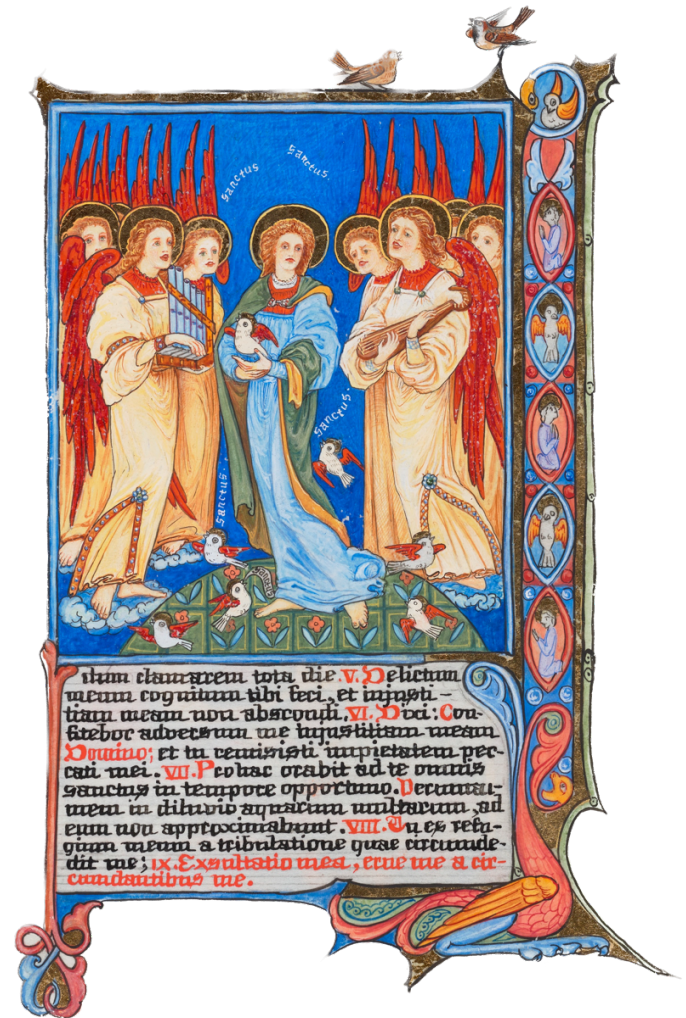 Sanctus
Sanctus.
Sanctus.
Sanctus.
dum clamarem tota die. V. Delictum
meum cognitum tibi feci, et injusti-
tiam meam non abscondi. VI. Dixi: Con-
fitebor adversum me injustitiam meam
Domino; et tu remisisti impietatem pec-
cati mei. VII. Pro hac orabit ad te omnis
sanctus in tempore opportuno. Verumta-
men in diluvio aquarum multarum, ad
eum non approximabunt. VIII. Tu es refu-
gium meum a tribulatione quae circumde-
dit me; IX. Exsultatio mea, erue me a cir-
cumdantibus me.